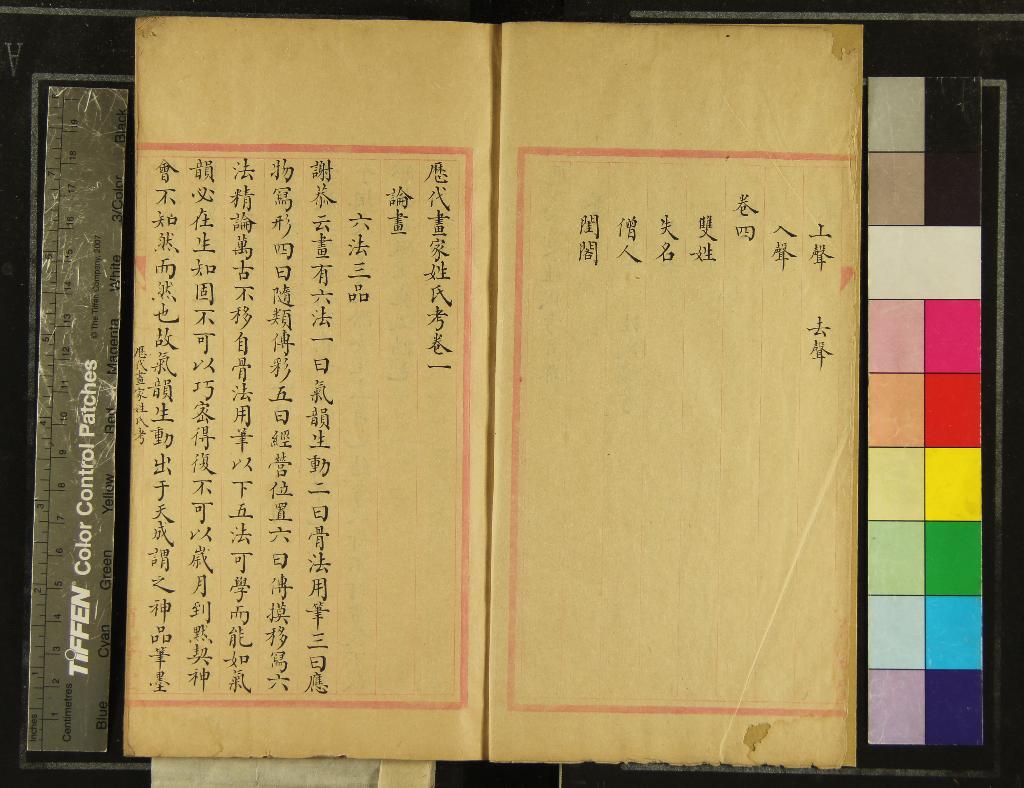 上聲　去聲
入聲
卷四
雙姓
失名
僧人
閨閤
歷代畫家姓氏考卷一
論畫
六法三品
謝恭云畫有六法一曰氣韻生動二曰骨法用筆三曰應
物寫形四曰隨類傅彩五曰經營位置六曰傳摸移寫六
法精論萬古不移自骨法用筆以下五法可學而能如氣
韻必在生知固不可以巧密得復不可以歲月到默契神
會不知然而然也故氣韻生動出于天成謂之神品筆墨
歷代畫家姓氏考
Inches
Centimetres
TIFFEN Color Control Patches
© The Tiffen Company, 2007
Blue Cyan Green Yellow Red Magenta White 3/Color Black
A